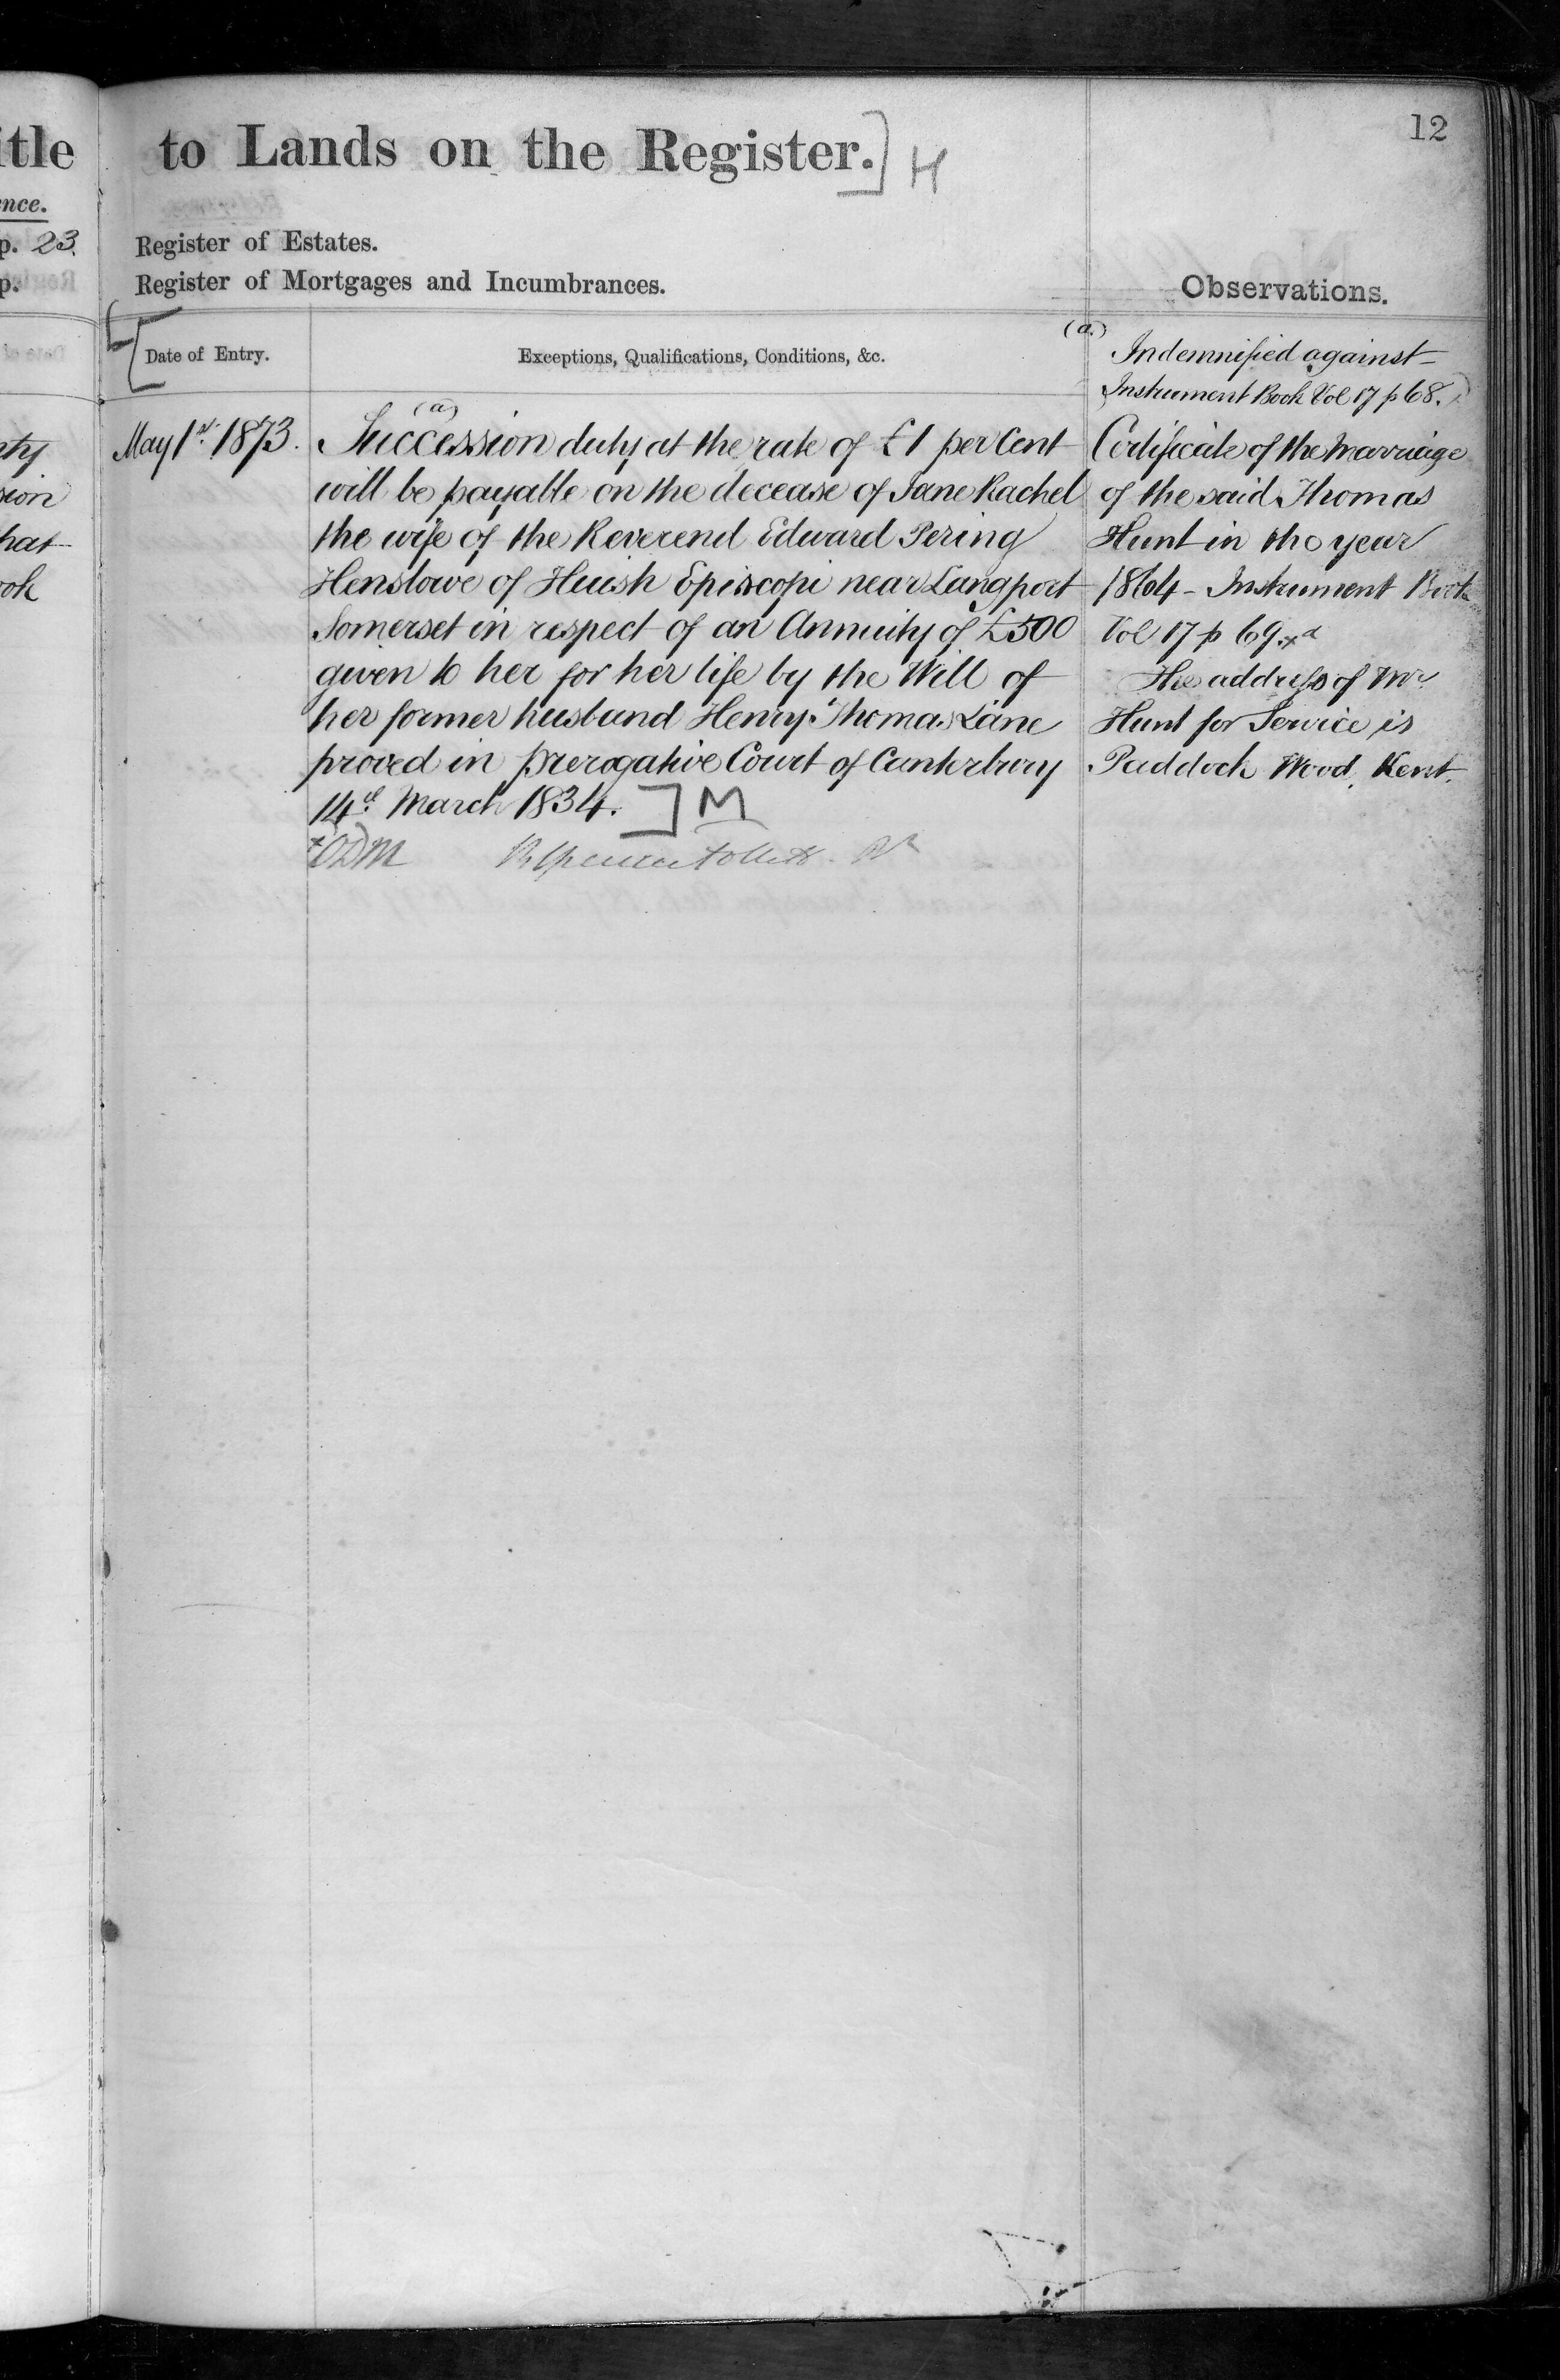 itle
nce.
p. 23.
p.
nty
sion
hat
ook
to Lands on the Register.] H
12
Register of Estates.
Register of Mortgages and Incumbrances.
Observations.
Date of Entry.
Exceptions, Qualifications, Conditions, &c.
(a.) Indemnified against
Instrument Book Vol 17 p 68.
May 1st 1873.
(a)
Succession duty at the rate of £1 per Cent
will be payable on the decease of Jane Rachel
the wife of the Reverend Edward Pering
Henslowe of Huish Episcopi near Langport
Somerset in respect of an Annuity of £500
given to her for her life by the Will of
her former husband Henry Thomas Lane
proved in prerogative Court of Canterbury
14th March 1834. ] M
Certificate of the Marriage
of the said Thomas
Hunt in the year
1864 - Instrument Book
Vol 17 p 69.
The address of Mr
Hunt for Service is
Paddock Wood, Kent.